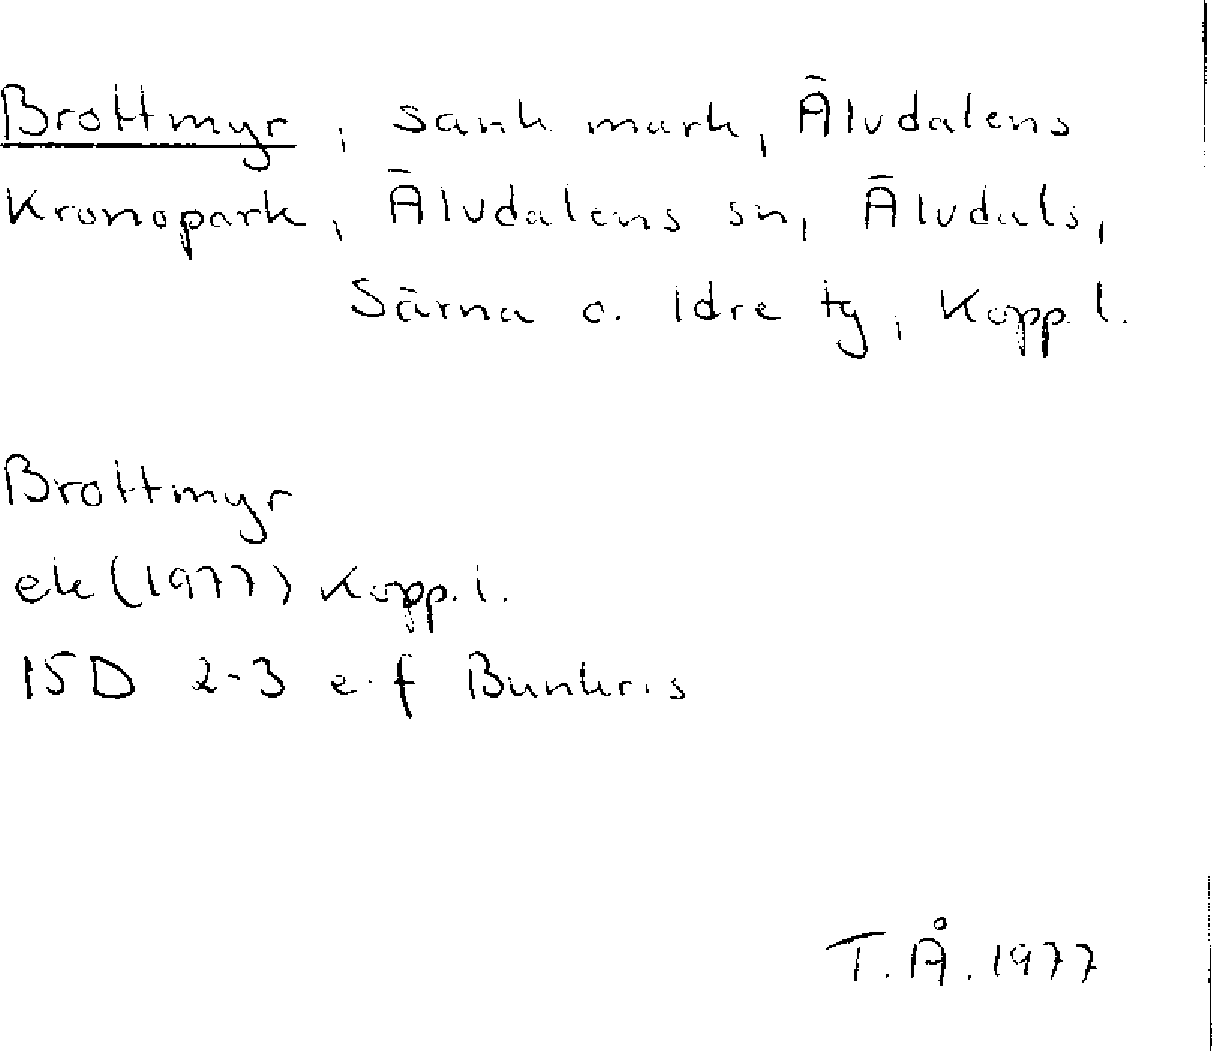 Brottmyr, sank mark, Älvdalens
Kronopark, Älvdalens sn, Älvdals,
Särna o. Idre tg, Kopp. l.
Brottmyr
ek (1977) Kopp. l.
15D 2-3 e-f Bunkris
T.Å. 1977